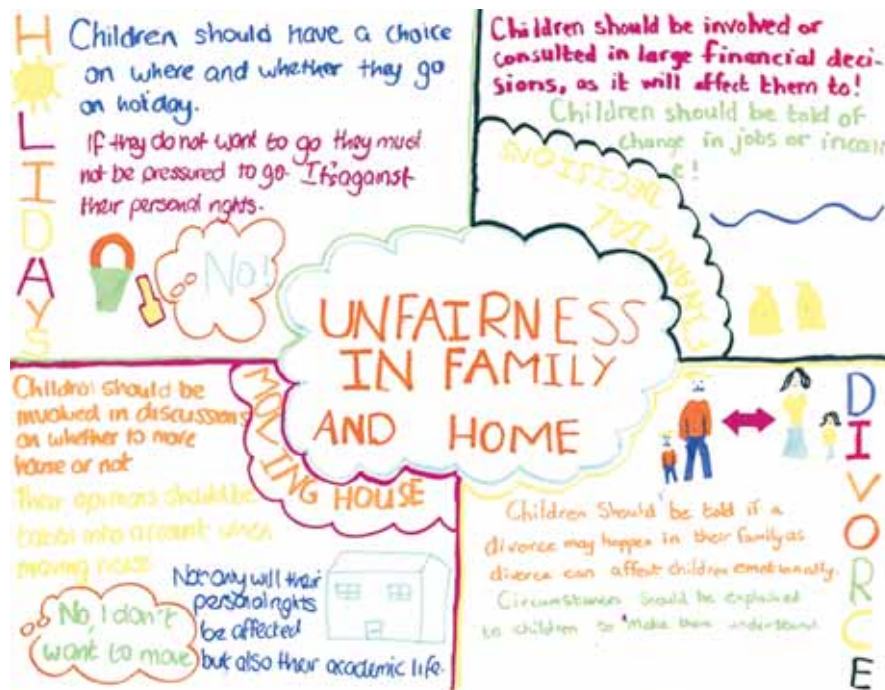 HOLIDAYS
Children should have a choice
on where and whether they go
on holiday.
If they do not want to go they must
not be pressured to go. It's against
their personal rights.
No!
Children should be involved or
consulted in large financial deci-
sions, as it will affect them to!
Children should be told of
change in jobs or incom
e!
FINANCIAL
DECISIONS
UNFAIRNESS
IN FAMILY
AND HOME
MOVING HOUSE
Children should be
involved in discussions
on whether to move
house or not
Their opinions should be
taken into account when
moving house
No, I don't
want to move
Not only will their
personal rights
be affected
but also their academic life.
DIVORCE
Children Should be told if a
divorce may happen in their family as
divorce can affect children emotionally.
Circumstances should be explained
to children to make them understand.